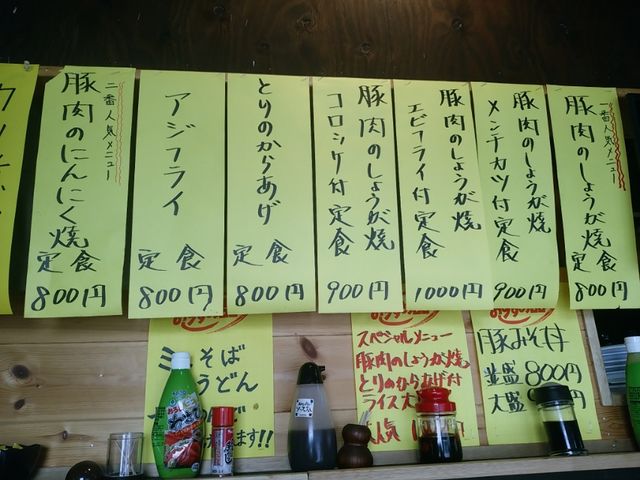 一番人気メニュー
豚肉のしょうが焼
定食
800円
豚肉のしょうが焼
メンチカツ付定食
900円
豚肉のしょうが焼
エビフライ付定食
1000円
豚肉のしょうが焼
コロッケ付定食
900円
とりのからあげ
定食
800円
アジフライ
定食
800円
二番人気メニュー
豚肉のにんにく焼
定食
800円
そば
うどん
ます!!
スペシャルメニュー
豚肉のしょうが焼
とりのからあげ付
ライス大
人気
豚みそ丼
並盛800円
大盛